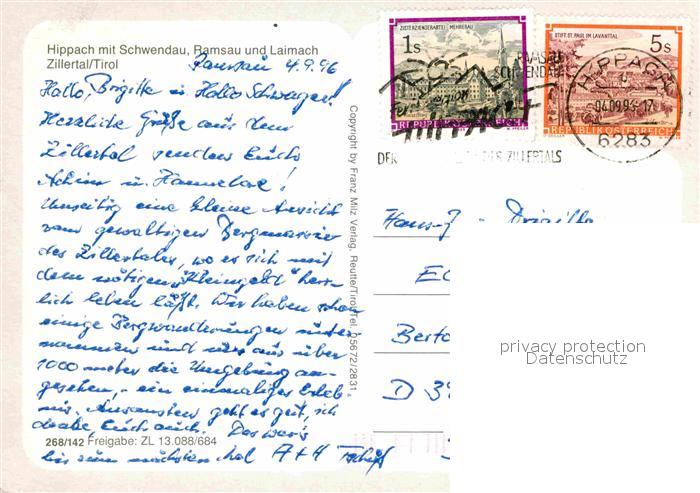 Hippach mit Schwendau, Ramsau und Laimach
Zillertal/Tirol
Ramsau 4.9.96
Hallo, Brigitte u. Hallo Schwager!
Herzliche Grüße aus dem
Zillertal senden Euch
Achim u. Hannelore!
Umseitig eine kleine Ansicht
vom gewaltigen Bergmassiv
des Zillertales, wo es sich mit
dem nötigen "Kleingeld" herr-
lich leben läßt. Wir haben schon
einige Bergwanderungen unter-
nommen und uns aus über
1000 meter die Umgebung an-
gesehen, - ein einmaliges Erleb-
nis. Ansonsten geht es gut, ich
Euch auch. Das war's
bis zum nächsten Mal A+H
268/142 Freigabe: ZL 13.088/684
Copyright by Franz Milz Verlag, Reutte/Tirol Tel. 05672/2831
ZISTERZIENSERABTEI MEHRERAU
1s
REPUBLIK ÖSTERREICH
STIFT ST. PAUL IM LAVANTTAL
5s
REPUBLIK ÖSTERREICH
RAMSAU
SCHWENDAU
HIPPACH
DER DES ZILLERTALS
HIPPACH
04.09.96-17
6283
Hans-J
Berto
D 3
privacy protection
Datenschutz